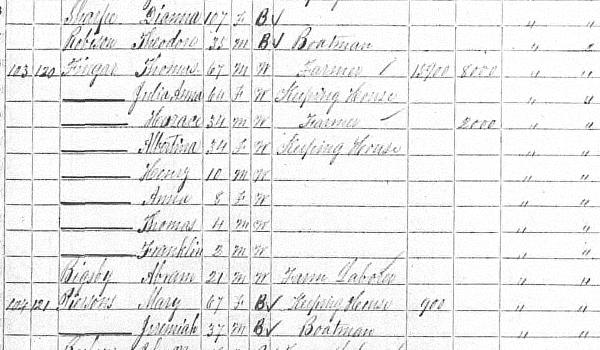 Sharpe Dianna 107 F B √ " "
Robison Theodore 35 M B √ Boatman " "
103 120 Fingar Thomas 67 M W Farmer / 15900 8000 " "
—— Julia Anna 64 F W Keeping House " "
—— Horace 34 M W Farmer 2000 " "
—— Albertina 34 F W Keeping House " "
—— Henry 10 M W " "
—— Anna 8 F W " "
—— Thomas 4 M W " "
—— Franklin 2 M W " "
Bigsby Abram 21 M W Farm Laborer " "
104 121 Piersons Mary 67 F B √ Keeping House 900 " "
—— Jeremiah 37 M B √ Boatman " "